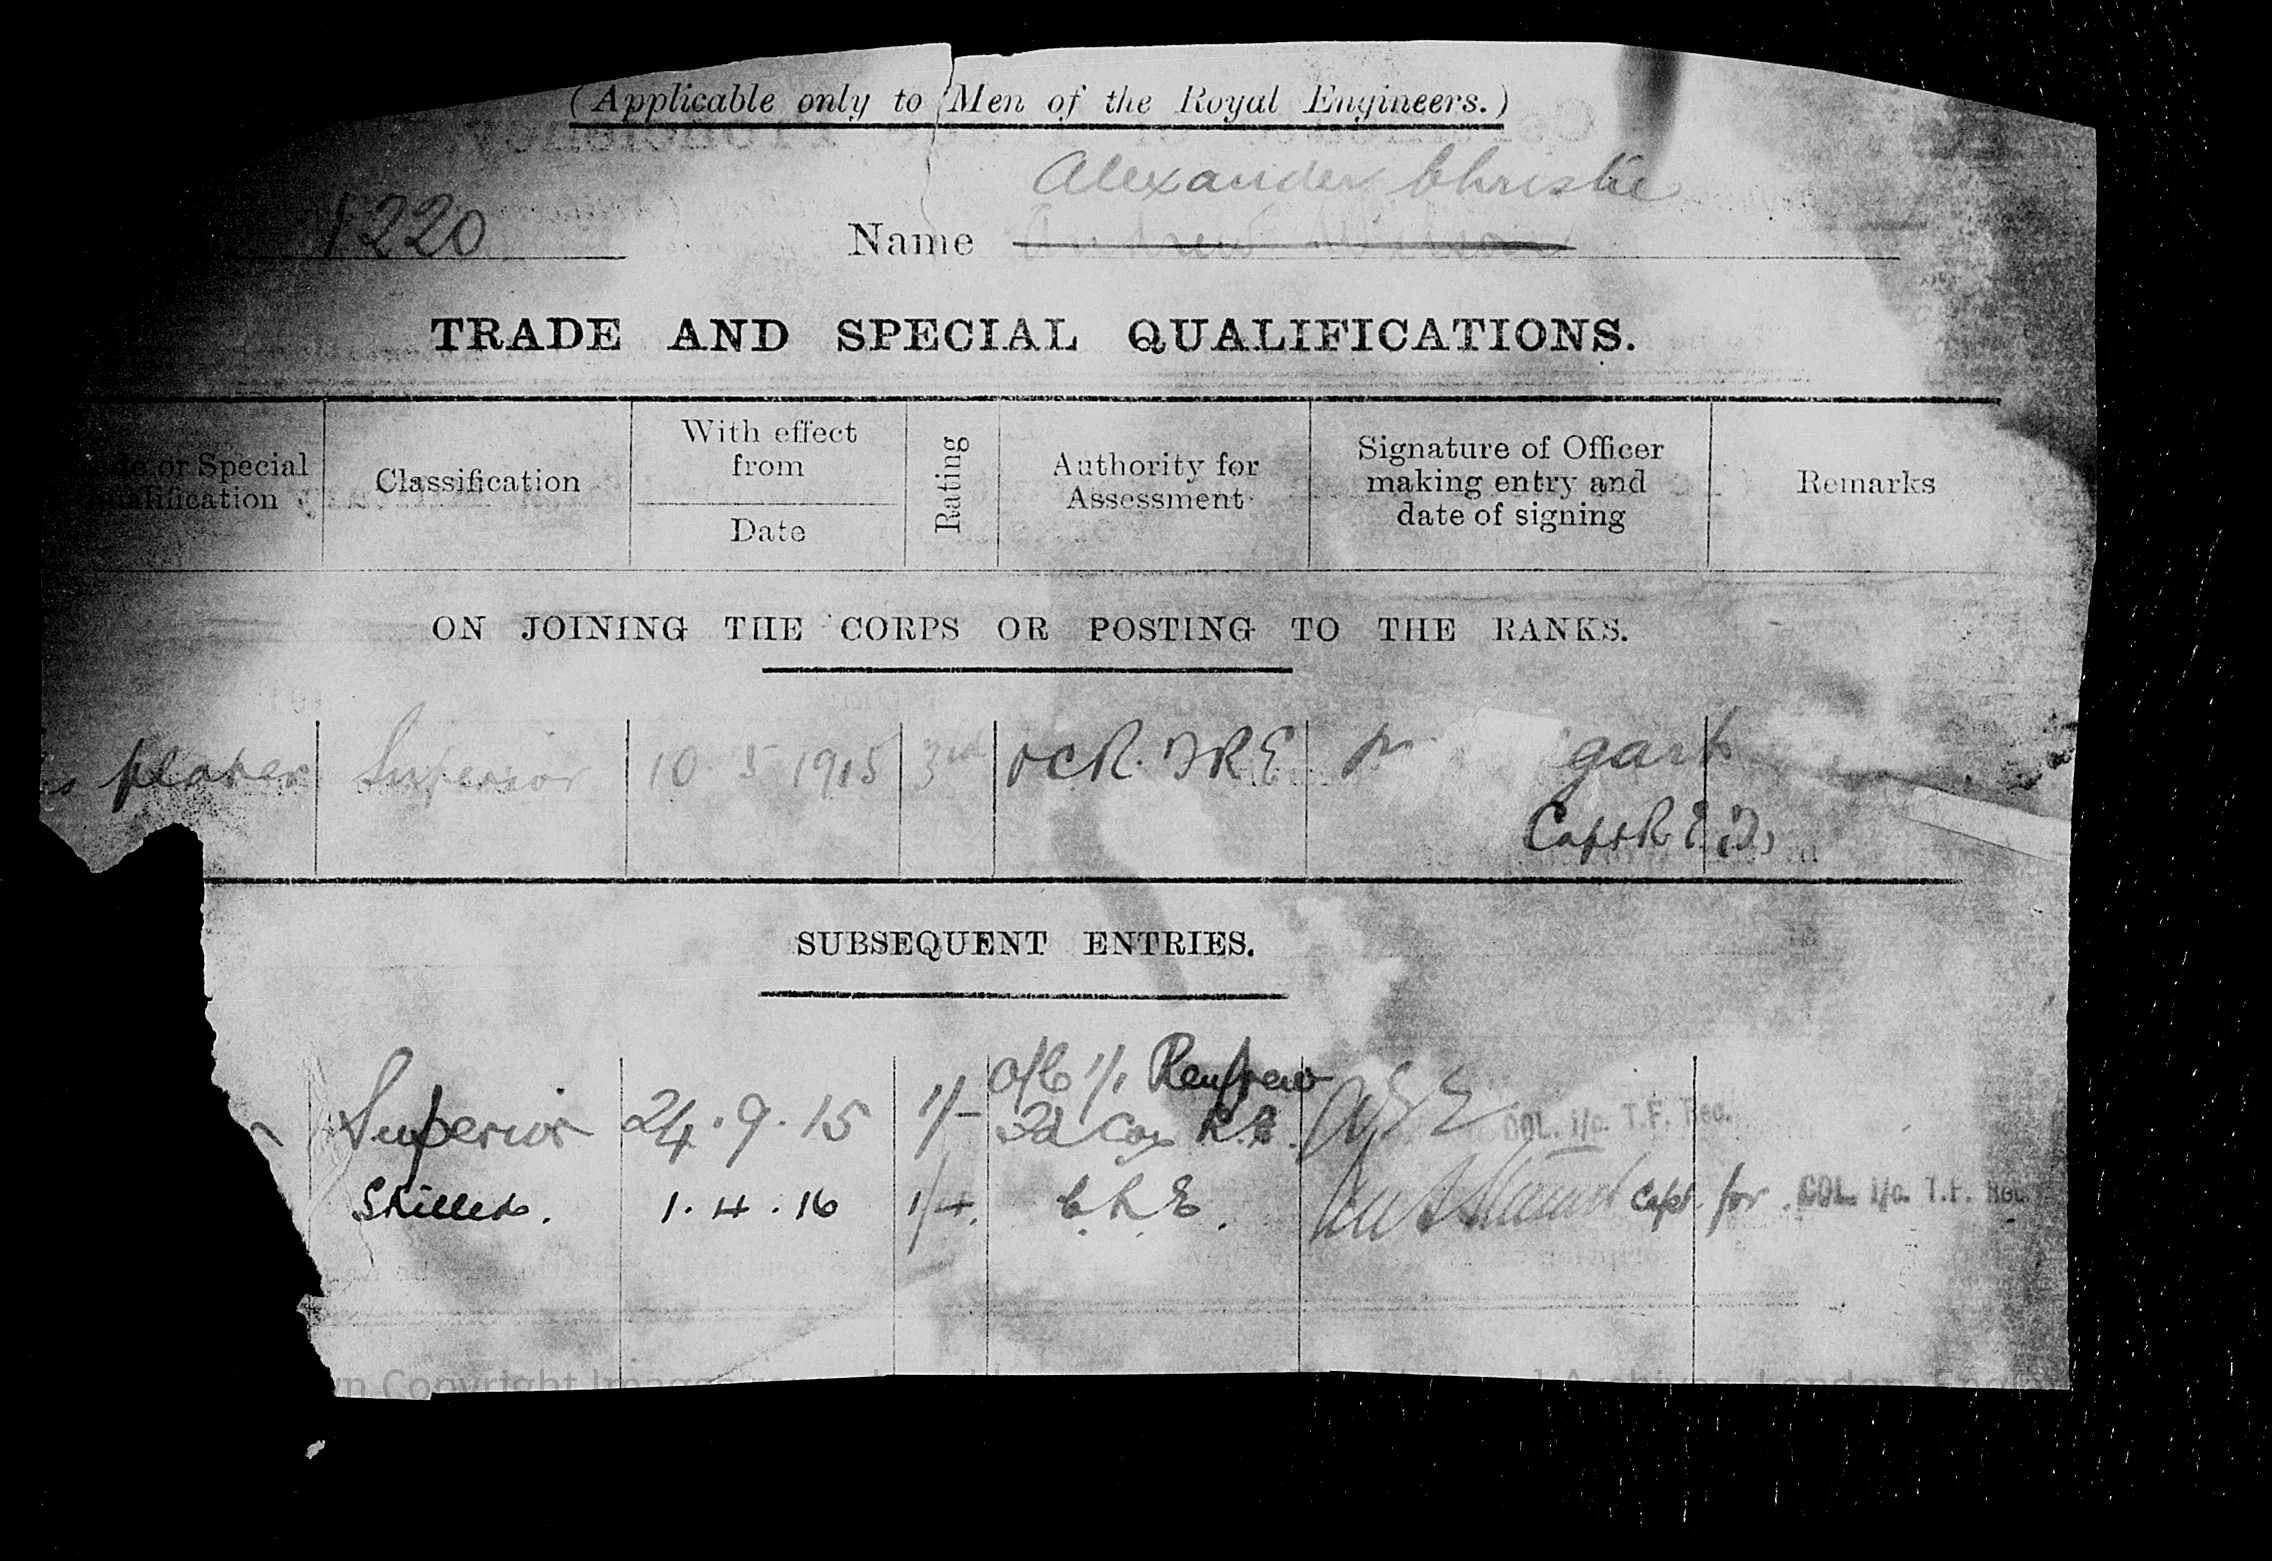 (Applicable only to Men of the Royal Engineers.)
Alexander Christie
1220
Name Andrew Wilson
TRADE AND SPECIAL QUALIFICATIONS.
or Special
Classification
With effect
from
Date
Rating
Authority for
Assessment
Signature of Officer
making entry and
date of signing
Remarks
ON JOINING THE CORPS OR POSTING TO THE RANKS.
plater Superior 10 5 1915 3rd OCR. FRE
Capt R E T,
SUBSEQUENT ENTRIES.
O/C 1/1 Renfrew
Superior 24.9.15 1/- Fd Coy R.E. COL. i/c. T.F. Rec.
Skilled. 1.4.16 1/4. C.R.E. Capt. for COL. i/c. T.F. Rec.
Copyright Images London, Engl